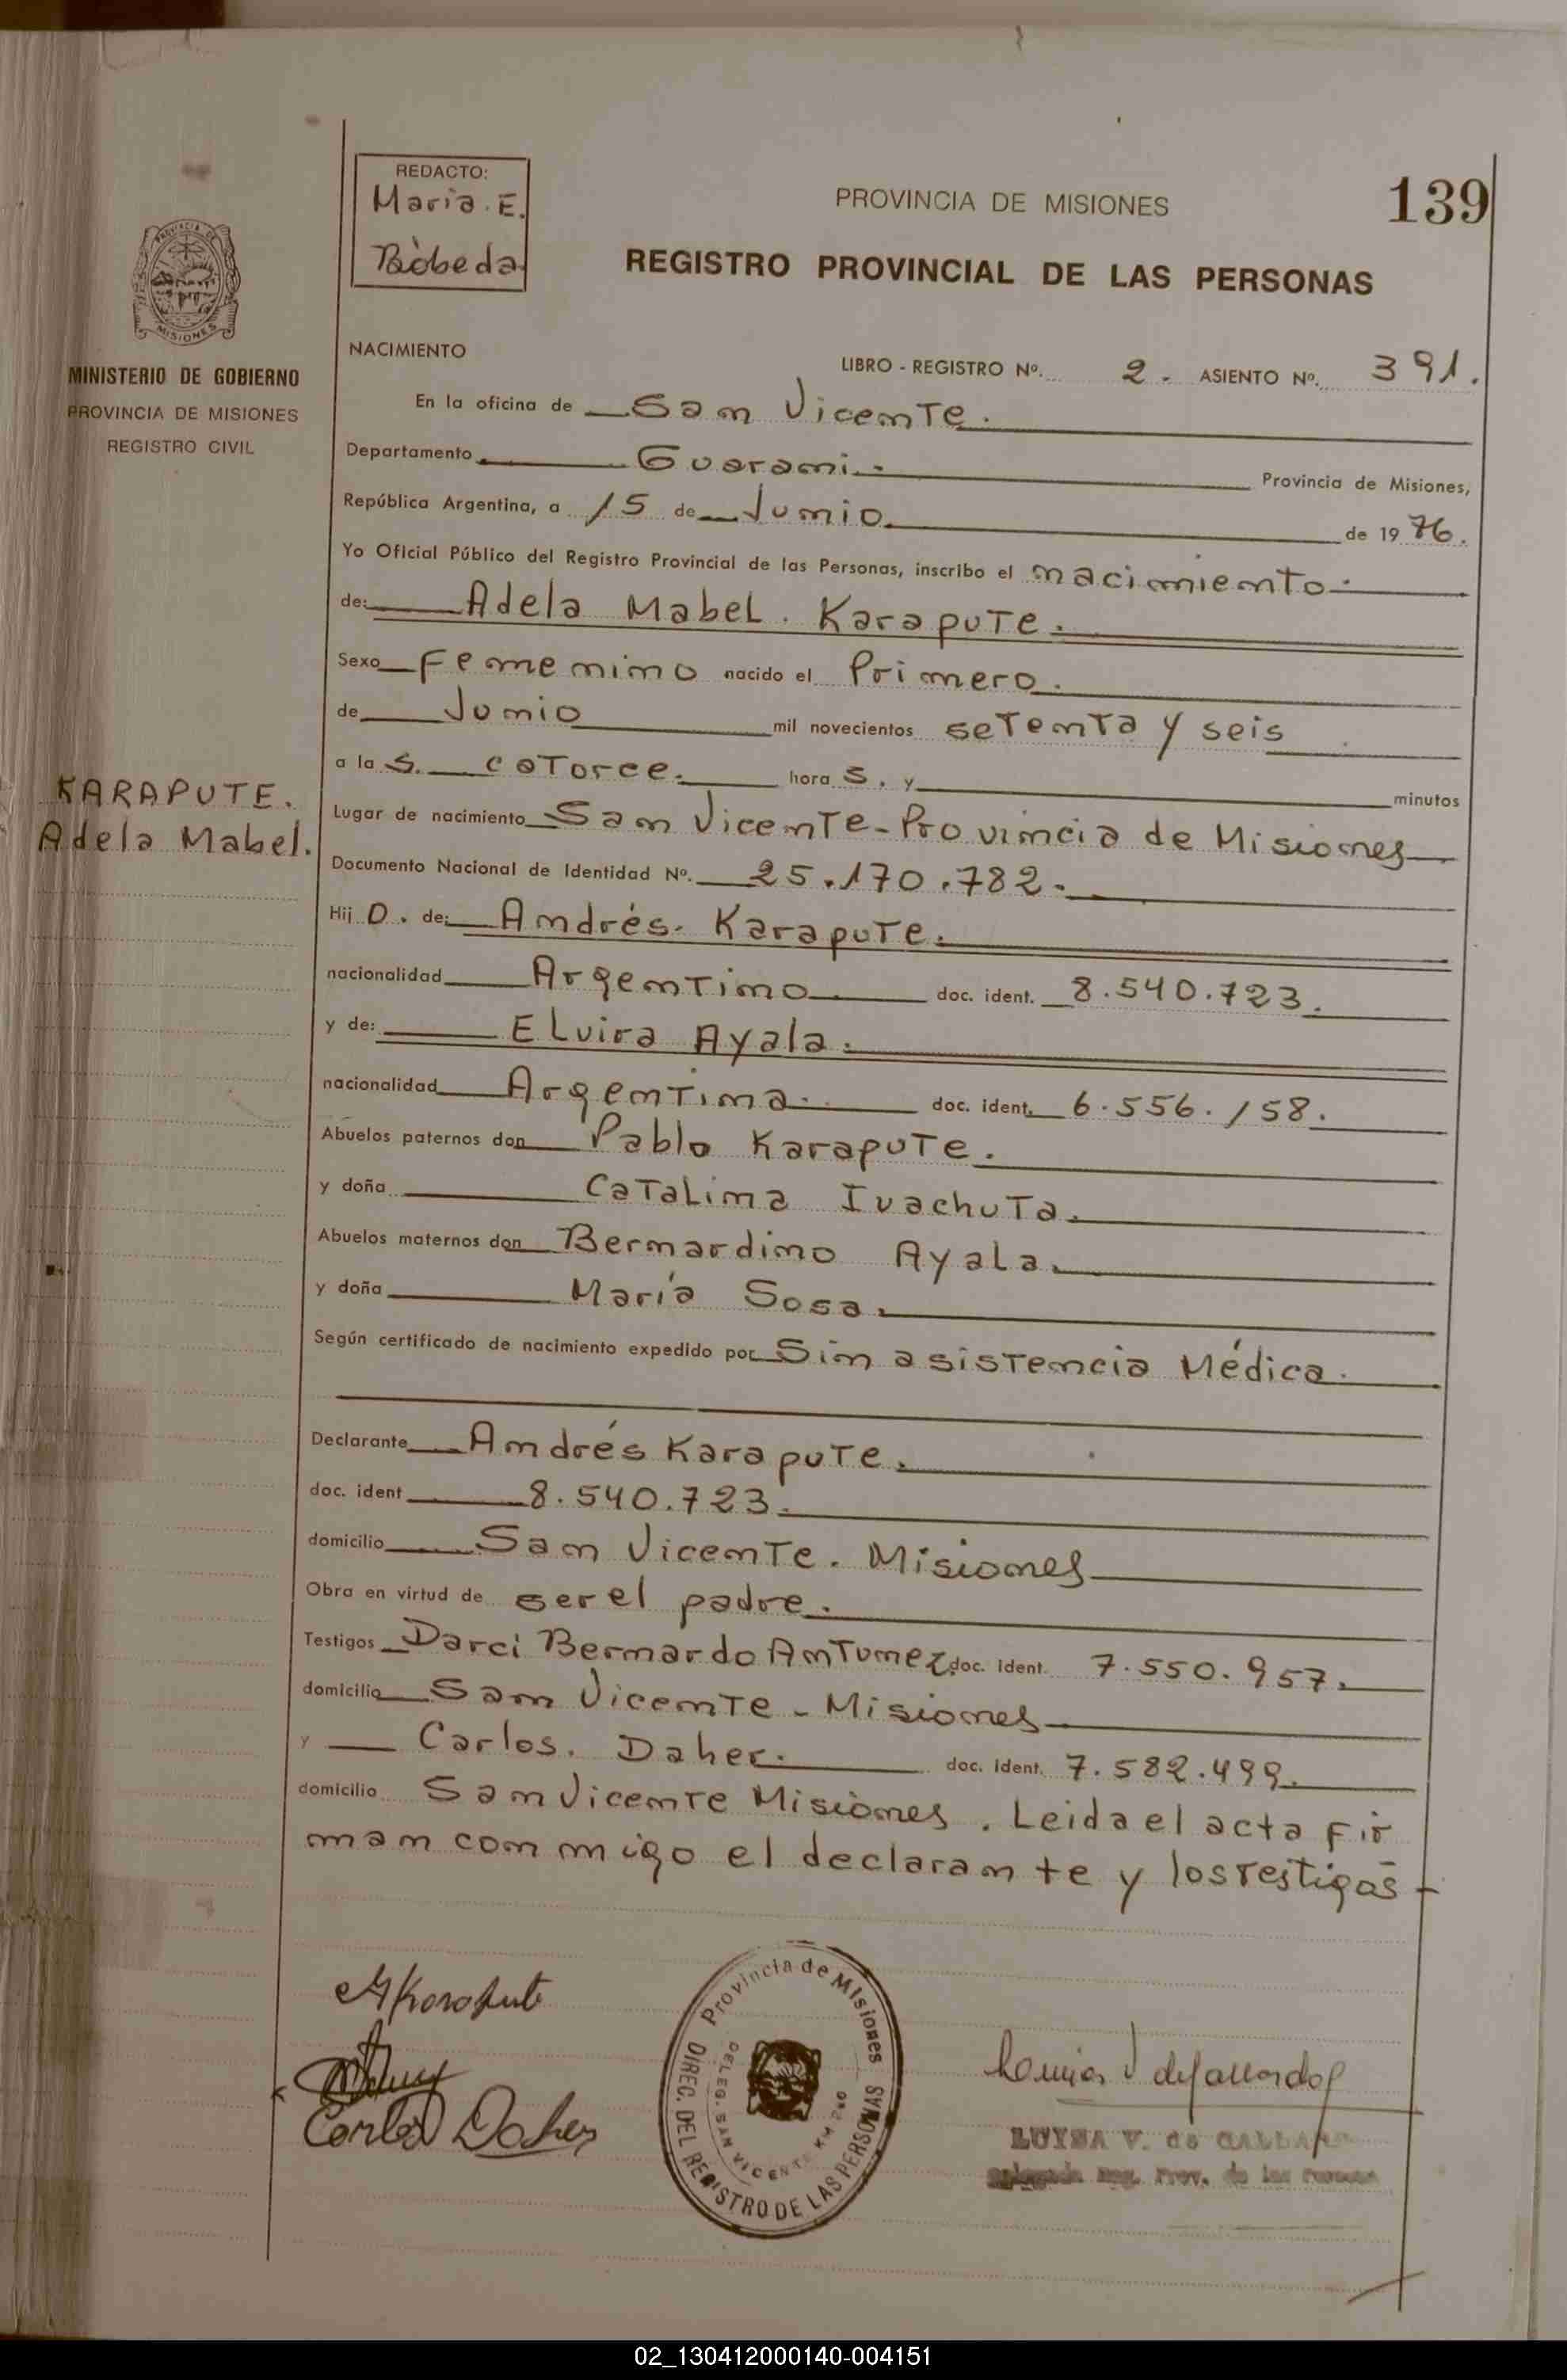 REDACTO:
Maria. E.
Bòbeda
PROVINCIA DE MISIONES
139
REGISTRO PROVINCIAL DE LAS PERSONAS
MISIONES
MINISTERIO DE GOBIERNO
PROVINCIA DE MISIONES
REGISTRO CIVIL
NACIMIENTO
LIBRO - REGISTRO Nº. 2. ASIENTO Nº. 391.
En la oficina de San Vicente.
Departamento Guarani. Provincia de Misiones,
República Argentina, a 15 de Junio de 1976.
Yo Oficial Público del Registro Provincial de las Personas, inscribo el nacimiento.
de: Adela Mabel. Karapute.
Sexo Femenino nacido el Primero.
de Junio mil novecientos setenta y seis
a la s. catorce. hora s. y minutos
KARAPUTE.
Adela Mabel.
Lugar de nacimiento San Vicente - Provincia de Misiones
Documento Nacional de Identidad Nº. 25.170.782.
Hij o. de: Andrés. Karapute.
nacionalidad Argentino doc. ident. 8.540.723.
y de: Elvira Ayala.
nacionalidad Argentina. doc. ident. 6.556.158.
Abuelos paternos don Pablo Karapute.
y doña Catalina Ivachuta.
Abuelos maternos don Bernardino Ayala.
y doña María Sosa.
Según certificado de nacimiento expedido por Sin asistencia Médica.
Declarante Andrés Karapute.
doc. ident 8.540.723.
domicilio San Vicente. Misiones
Obra en virtud de ser el padre.
Testigos Darci Bernardo Antunez doc. ident. 7.550.957.
domicilio San Vicente - Misiones
y Carlos. Daher. doc. ident. 7.582.499.
domicilio San Vicente Misiònes. Leida el acta fir
man con migo el declarante y los testigos
AKarapute
Carlos Daher
Provincia de Misiones
DIREC. DEL REGISTRO DE LAS PERSONAS
DELEG. SAN VICENTE KM 260
LUISA V. de GALLAR
Reg. Prov. de las Personas
02_130412000140-004151